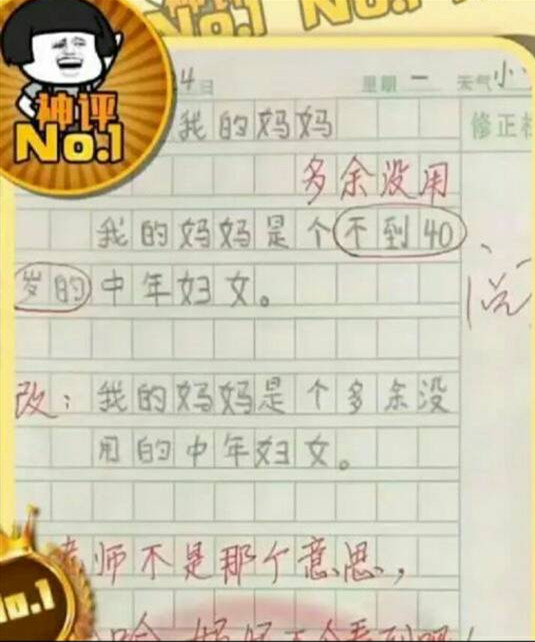 No.1
神评
No.1
4日 星期一 天气小
我的妈妈
多余没用
我的妈妈是个不到40
岁的中年妇女。
改：我的妈妈是个多余没
用的中年妇女。
老师不是那个意思，
No.1